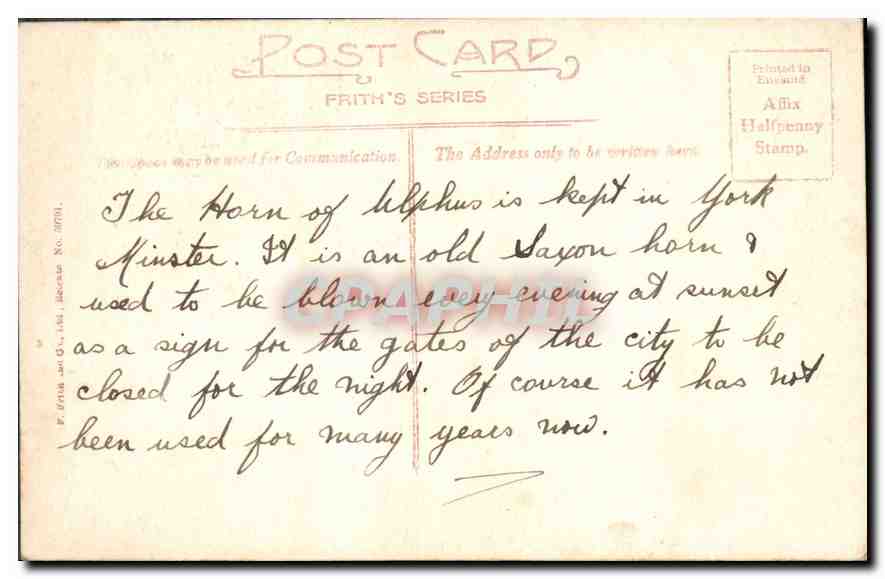 POST CARD
FRITH'S SERIES
Printed in England
Affix
Halfpenny
Stamp.
This space may be used for Communication.
The Address only to be written here.
The Horn of Ulphus is kept in York
Minster. It is an old Saxon horn &
used to be blown every evening at sunset
as a sign for the gates of the city to be
closed for the night. Of course it has not
been used for many years now.
F. Frith and Co., Ltd., Reigate No.
CPAPHIL